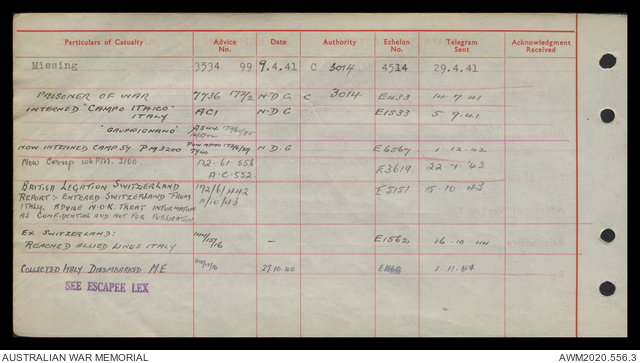 Particulars of Casualty Advice No. Date Authority Echelon No. Telegram Sent Acknowledgment Received
Missing 3534 99 9.4.41 C 3014 4514 29.4.41
PRISONER OF WAR 7736 173/2 N.D.G C 3014 E1433 14.7.41
INTERNED "CAMPO ITALCO- AC1 N.D.G E1533 5 9.41
ITALY
"GRUPPIGNANO"
NOW INTERNED CAMP 57 P.M 3200 N.D.G E6567 1.12.42
Now Camp 106 P.M. 3100. 172.61.556 E3619 22.1.43
A.C.552
BRITISH LEGATION SWITZERLAND 172/6/442 E5151 15 10 43
REPORT:- ENTERED SWITZERLAND FROM 11/10/43
ITALY. ADVISE N.O.K. TREAT INFORMATION
AS CONFIDENTIAL AND NOT FOR PUBLICATION
EX SWITZERLAND:
REACHED ALLIED LINES ITALY - E1562 16.10.44
COLLECTED ITALY DISEMBARKED M.E. 27.10.44 1.11.44
SEE ESCAPEE LEX
AUSTRALIAN WAR MEMORIAL AWM2020.556.3